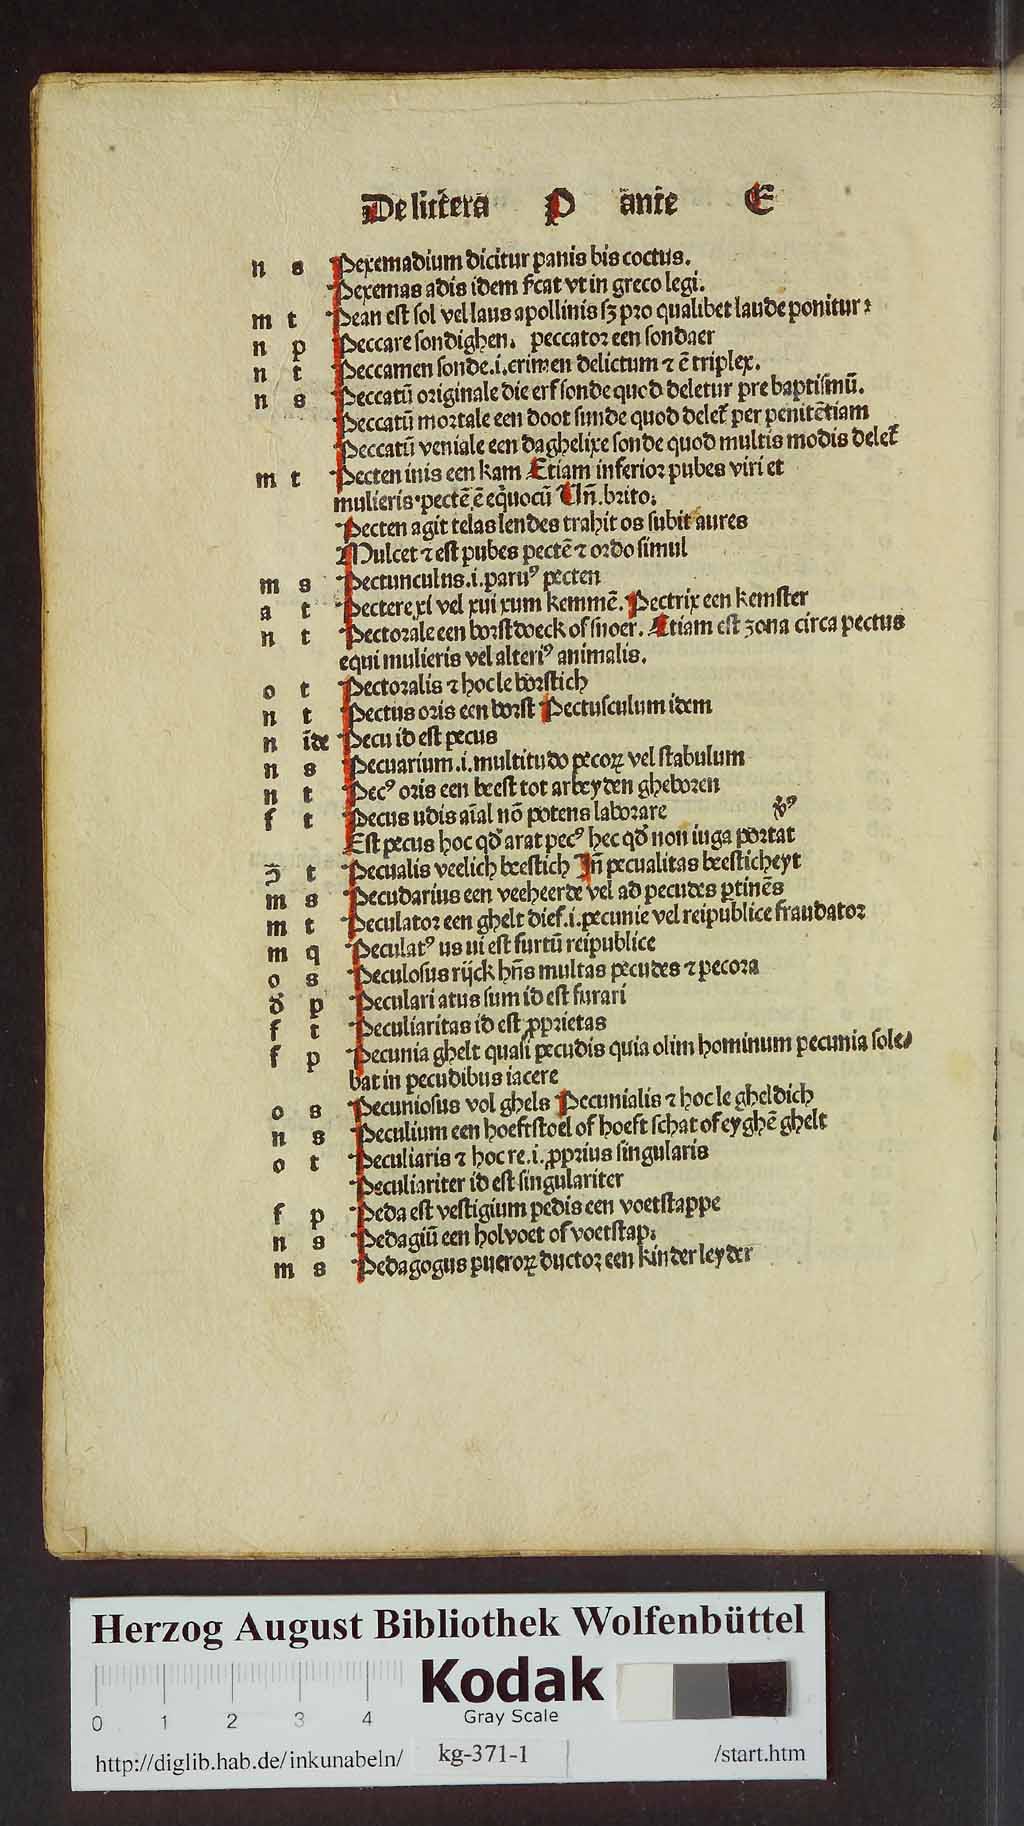 De littera P ante E
n s Pexemadium dicitur panis bis coctus.
Pexemas adis idem s̄cat vt in greco legi.
m t Pean est sol vel laus apollinis sꝫ pro qualibet laude ponitur ꝛ
n p Peccare sondighen. peccator een sondaer
n t Peccamen sonde.i.crimen delictum ⁊ ē triplex.
n s Peccatū originale die erfsonde quod deletur pre baptismū.
Peccatū mortale een doot sunde quod delet̄ per penitētiam
Peccatū veniale een daghelixe sonde quod multis modis delet̄
m t Pecten inis een kam Etiam inferior pubes viri et
mulieris·pectē ē eq̄uocū Un̄.brito.
Pecten agit telas lendes trahit os subit aures
Mulcet ⁊ est pubes pectē ⁊ ordo simul
m s Pectunculus.i.paruꝰ pecten
a t Pectere xi vel xui xum kemmē. Pectrix een kemster
n t Pectorale een borstdoeck of snoer. Etiam est zona circa pectus
equi mulieris vel alteriꝰ animalis.
o t Pectoralis ⁊ hoc le borstich
n t Pectus oris een borst Pectusculum idem
n īde Pecu id est pecus
n s Pecuarium.i.multitudo pecoꝝ vel stabulum
n t Pecꝰ oris een beest tot arbeyden gheboren
f t Pecus udis aīal nō potens laborare v̓ꝰ
Est pecus hoc qđ arat pecꝰ hec qđ non iuga portat
ɔ̄ t Pecualis veelich beestich In̄ pecualitas beesticheyt
m s Pecudarius een veeheerde vel ad pecudes ptinēs
m t Peculator een ghelt dief.i.pecunie vel reipublice fraudator
m q Peculatꝰ us ui est furtū reipublice
o s Peculosus rijck hn̄s multas pecudes ⁊ pecora
đ p Peculari atus sum id est furari
f t Peculiaritas id est ꝓprietas
f p Pecunia ghelt quasi pecudis quia olim hominum pecunia sole⸗
bat in pecudibus iacere
o s Pecuniosus vol ghels Pecunialis ⁊ hoc le gheldich
n s Peculium een hoeftstoel of hoeft schat of eyghē ghelt
o t Peculiaris ⁊ hoc re.i.ꝓprius singularis
Peculiariter id est singulariter
f p Peda est vestigium pedis een voetstappe
n s Pedagiū een holvoet of voetstap.
m s Pedagogus pueroꝝ ductor een kinder leyder
Herzog August Bibliothek Wolfenbüttel
Kodak
Gray Scale
0 1 2 3 4
http://diglib.hab.de/inkunabeln/ kg-371-1 /start.htm